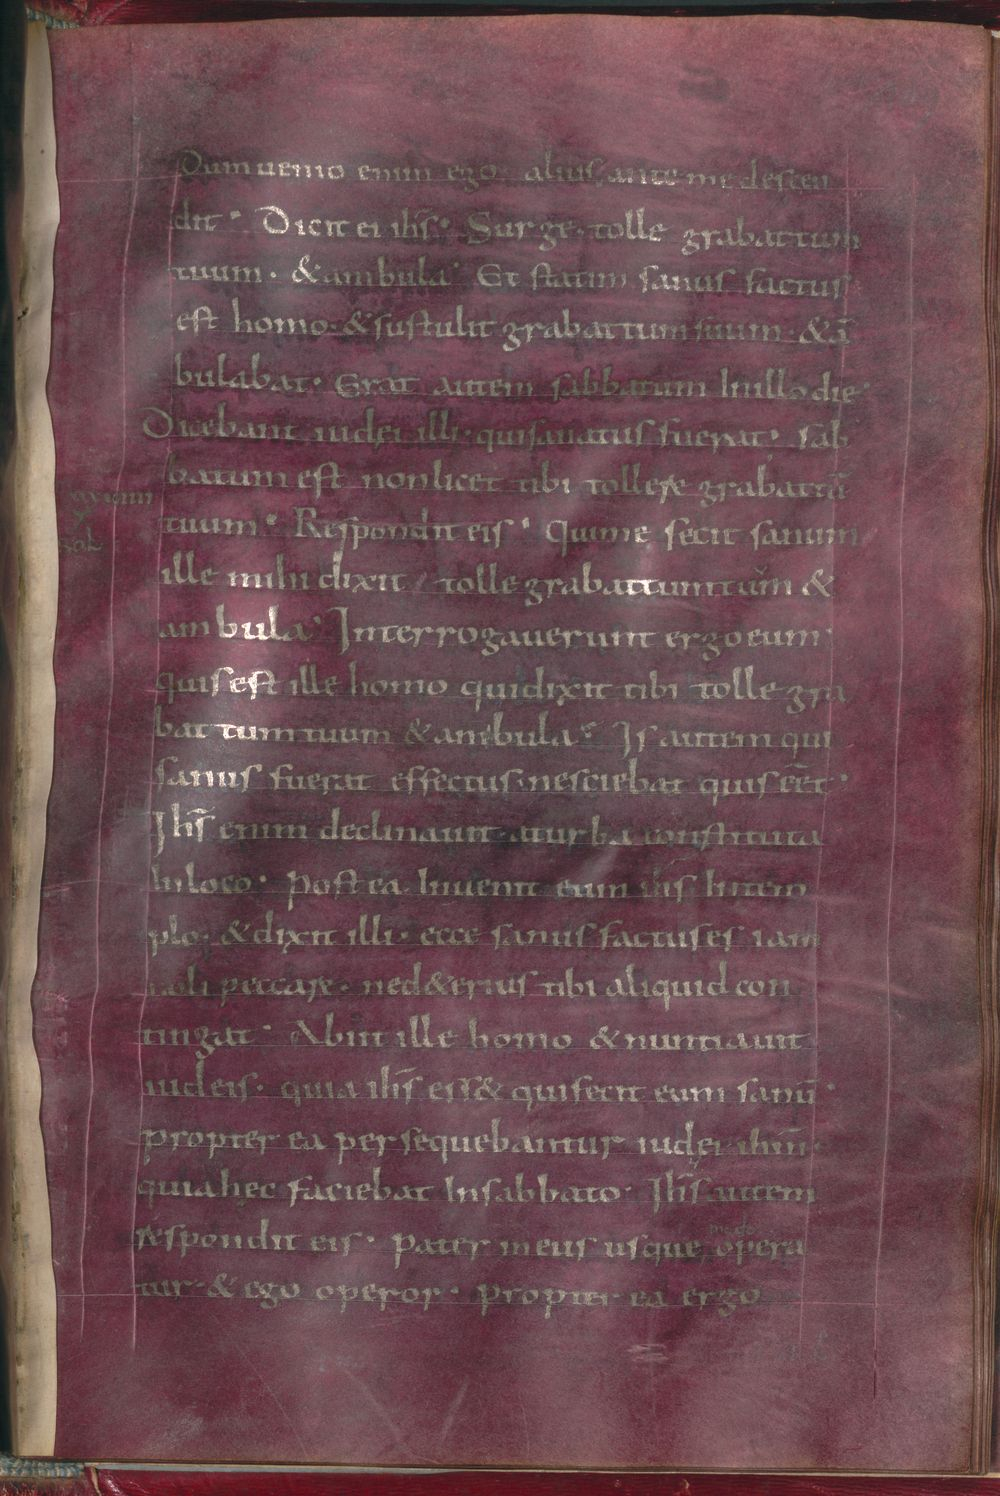 Dum uenio enim ego· alius ante me descen
dit· Dicit ei ih̄s· Surge· tolle grabattum
tuum· & ambula· Et statim sanus factus
est homo· & sustulit grabattum suum· & ā
bulabat· Erat autem sabbatum In illo die·
Dicebant iudęi illi· qui sanatus fuerat· sab
batum est non licet tibi tollere grabattū
tuum· Respondit eis· Qui me fecit sanum
ille mihi dixit / tolle grabattum tuū̄m &
ambula· Interrogauerunt ergo eum·
quis est ille homo qui dixit tibi tolle gra
battum tuum & ambula· Is autem qui
sanus fuerat effectus· nesciebat quis eēt·
Ih̄s enim declinauit· a turba constituta
In loco· postea Inuenit eum ih̄s In tem
plo· & dixit illi· ecce sanus factus es iam
noli peccare· ne d&erius tibi aliquid con
tingat· Abiit ille homo & nuntiauit
iudeis· quia ih̄s ess& qui fecit eum sanū·
propter ea persequebantur iudęi ih̄m·
quia hęc faciebat In sabbato· Ih̄s autem
respondit eis· pater meus usque modo opera
tur· & ego operor· propter ea ergo